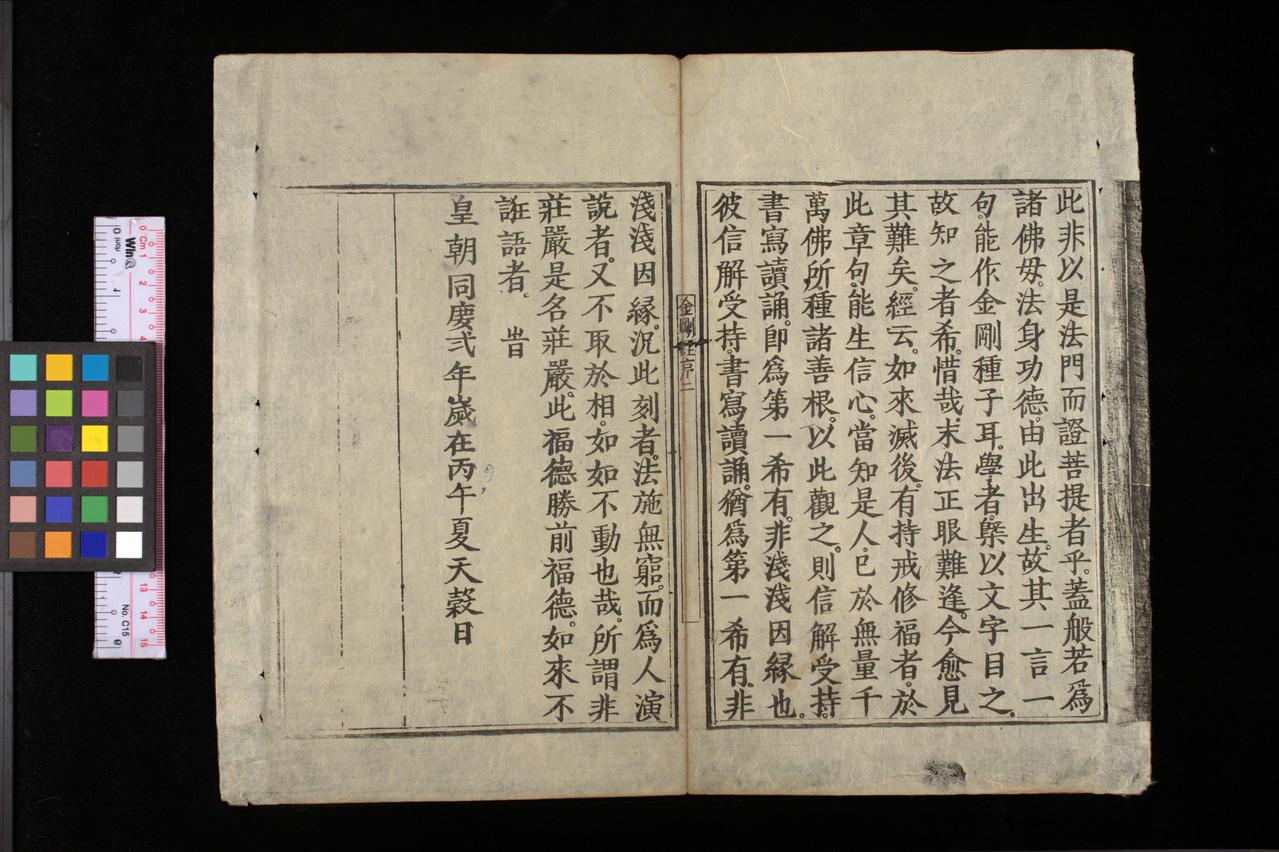 此非以是法門而證菩提者乎。蓋般若爲
諸佛毋。法身功德。由此出生。故其一言一
句。能作金剛種子耳。學者。槩以文字目之。
故知之者希。惜哉。末法正眼難逢。今愈見
其難矣。經云。如來滅後。有持戒修福者。於
此章句。能生信心。當知是人。已於無量千
萬佛所。種諸善根。以此觀之。則信解受持。
書寫讀誦。卽爲第一希有。非淺淺因緣也。
彼信解受持。書寫讀誦。猶爲第一希有。非
金剛經序二
淺淺因緣。況此刻者。法施無窮。而爲人演
說者。又不取於相。如如不動也哉。所謂非
莊嚴是名莊嚴。此福德勝前福德。如來不
誑語者。 旹
皇朝同慶弍年歲在丙午夏天榖日
Win@
No. C15